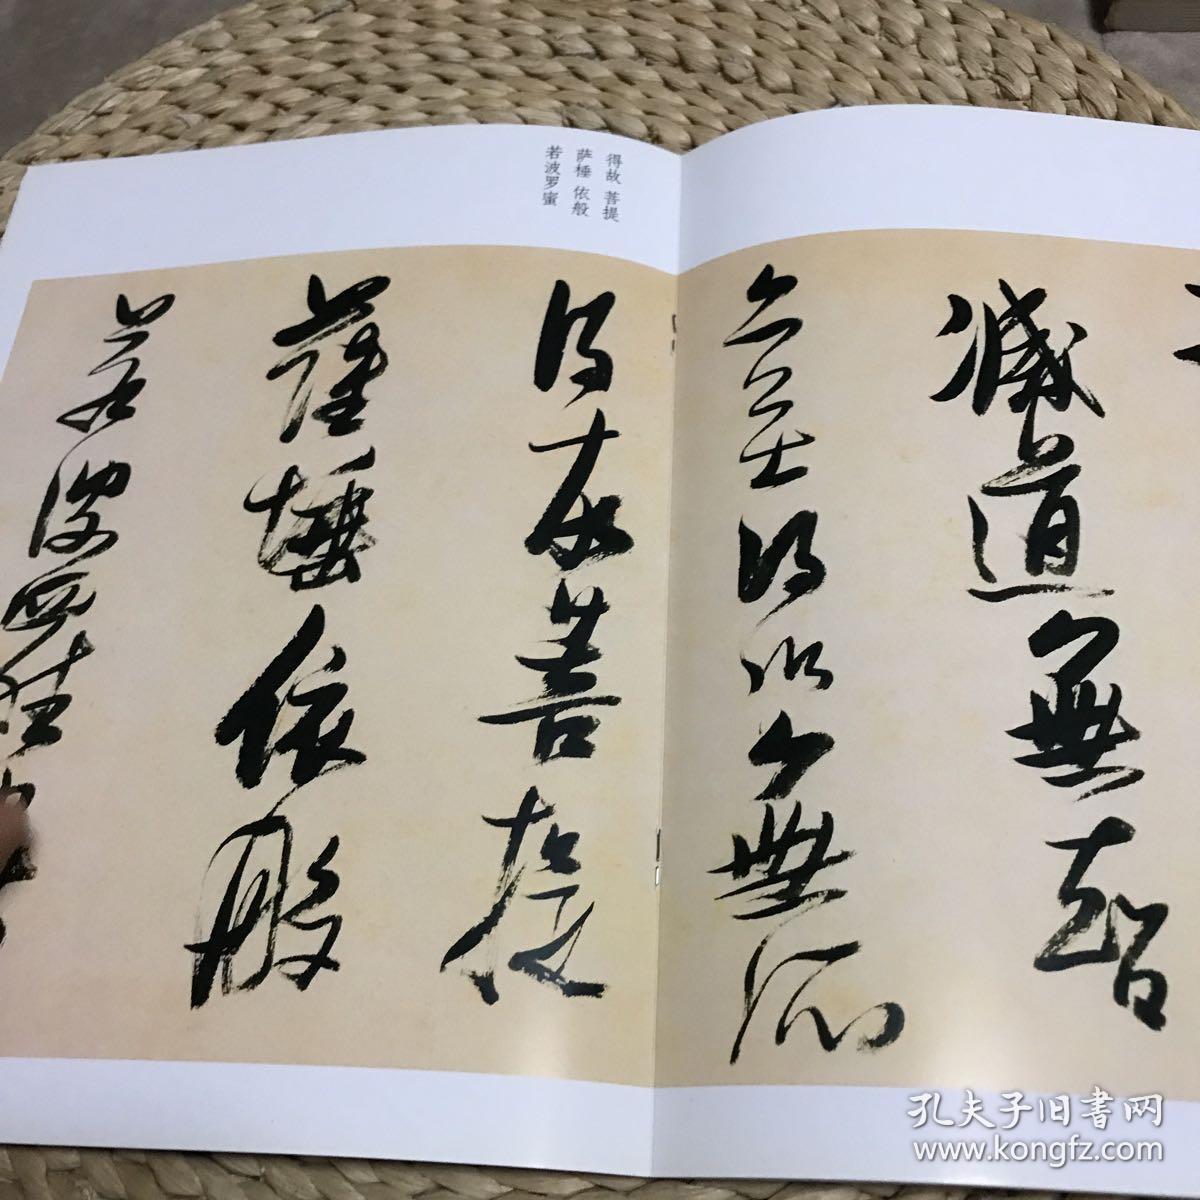 滅道無智
亦無得以無所
得故菩提
薩埵依般
若波羅蜜
得故 菩提
萨棰 依般
若波罗蜜
孔夫子旧书网
www.kongfz.com